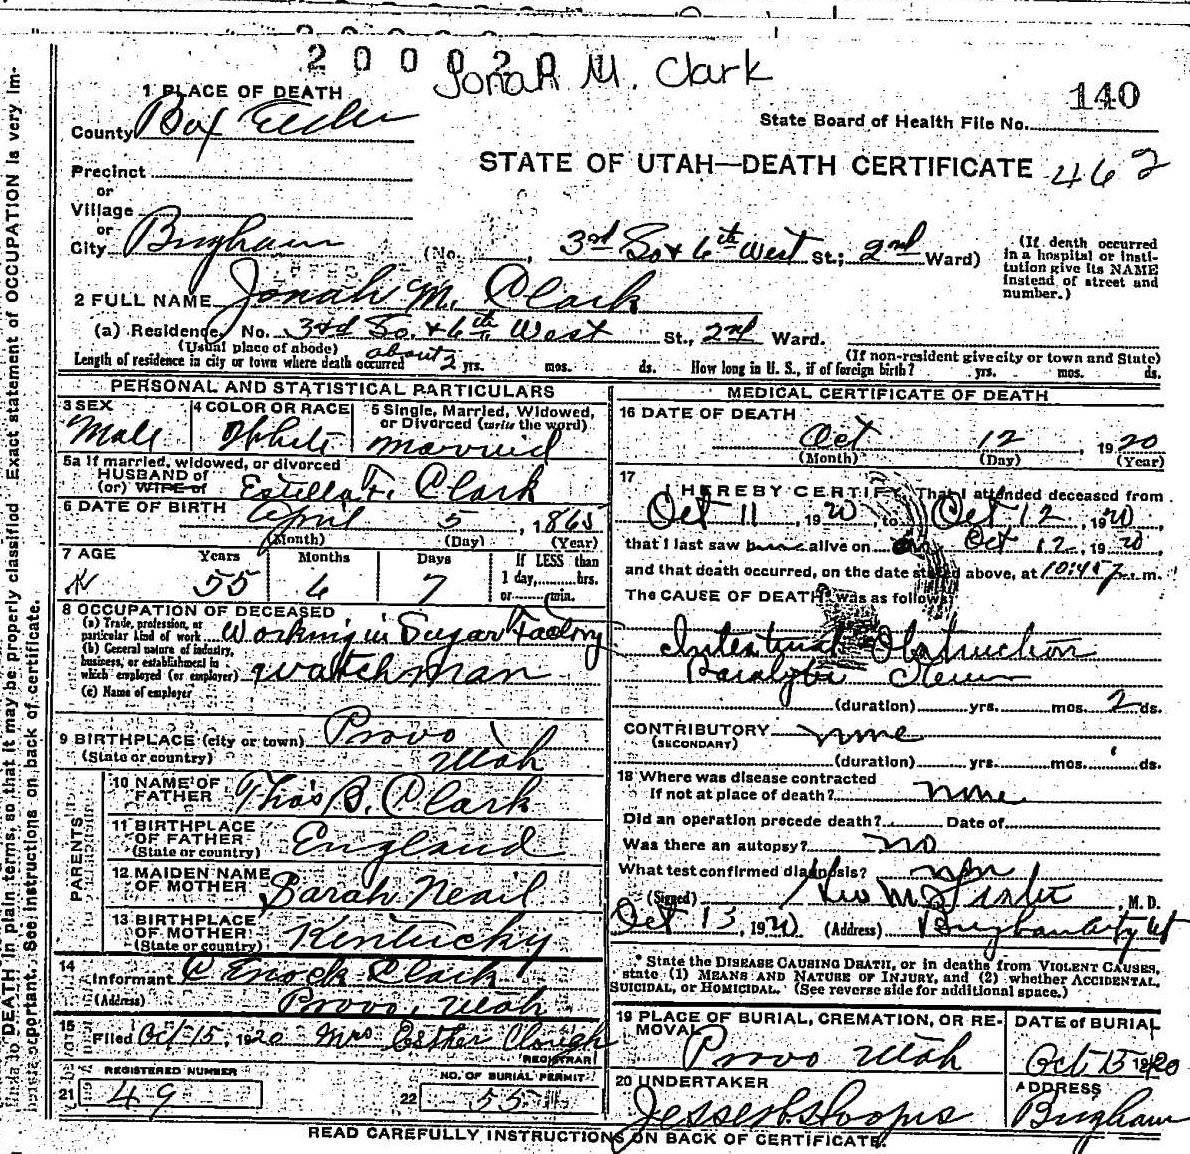 2 0 0 0 2
Jonah M. Clark
140
1 PLACE OF DEATH
County Box Elder
State Board of Health File No.
STATE OF UTAH—DEATH CERTIFICATE 462
Precinct
or
Village
or
City Brigham (No. 3rd So & 6th West St.; 2nd Ward)
(If death occurred in a hospital or institution give its NAME instead of street and number.)
2 FULL NAME Jonah M. Clark
(a) Residence, No. 3rd So. & 6th West St., 2nd Ward.
(Usual place of abode)
(If non-resident give city or town and State)
Length of residence in city or town where death occurred about 2 yrs. mos. ds. How long in U. S., if of foreign birth? yrs. mos. ds.
PERSONAL AND STATISTICAL PARTICULARS
3 SEX Male
4 COLOR OR RACE White
5 Single, Married, Widowed, or Divorced (write the word) Married
5a If married, widowed, or divorced
HUSBAND of
(or) WIFE of Estella F. Clark
6 DATE OF BIRTH April 5, 1865
(Month) (Day) (Year)
7 AGE Years Months Days If LESS than
55 6 7 1 day, hrs.
or min.
8 OCCUPATION OF DECEASED
(a) Trade, profession, or particular kind of work Working in Sugar Factory
(b) General nature of industry, business, or establishment in which employed (or employer) Watchman
(c) Name of employer
9 BIRTHPLACE (city or town) Provo
(State or country) Utah
PARENTS
10 NAME OF FATHER Thos B. Clark
11 BIRTHPLACE OF FATHER (State or country) England
12 MAIDEN NAME OF MOTHER Sarah Neail
13 BIRTHPLACE OF MOTHER (State or country) Kentucky
14
Informant Enock Clark
(Address) Provo, Utah
15
Filed Oct-15, 1920 Mrs Esther Clough
REGISTRAR
REGISTERED NUMBER
21 49
NO. OF BURIAL PERMIT
22 55
MEDICAL CERTIFICATE OF DEATH
16 DATE OF DEATH
Oct 12, 1920
(Month) (Day) (Year)
17
I HEREBY CERTIFY, That I attended deceased from
Oct 11, 1920, to Oct 12, 1920,
that I last saw alive on Oct 12, 1920,
and that death occurred, on the date stated above, at 10:45 p. m.
The CAUSE OF DEATH was as follows:
Intestinal Obstruction
Paralytic Ileus
(duration) yrs. mos. 2 ds.
CONTRIBUTORY none
(SECONDARY)
(duration) yrs. mos. ds.
18 Where was disease contracted
If not at place of death? none
Did an operation precede death? Date of
Was there an autopsy? no
What test confirmed diagnosis?
(Signed) M. D.
Oct 13, 1920 (Address) Brigham City Ut
* State the DISEASE CAUSING DEATH, or in deaths from VIOLENT CAUSES,
state (1) MEANS AND NATURE OF INJURY, and (2) whether ACCIDENTAL,
SUICIDAL, or HOMICIDAL. (See reverse side for additional space.)
19 PLACE OF BURIAL, CREMATION, OR REMOVAL Provo Utah
DATE of BURIAL
Oct 15 1920
20 UNDERTAKER
ADDRESS
Brigham
READ CAREFULLY INSTRUCTIONS ON BACK OF CERTIFICATE.
DEATH in plain terms, so that it may be properly classified Exact statement of OCCUPATION is very important. See instructions on back of certificate.